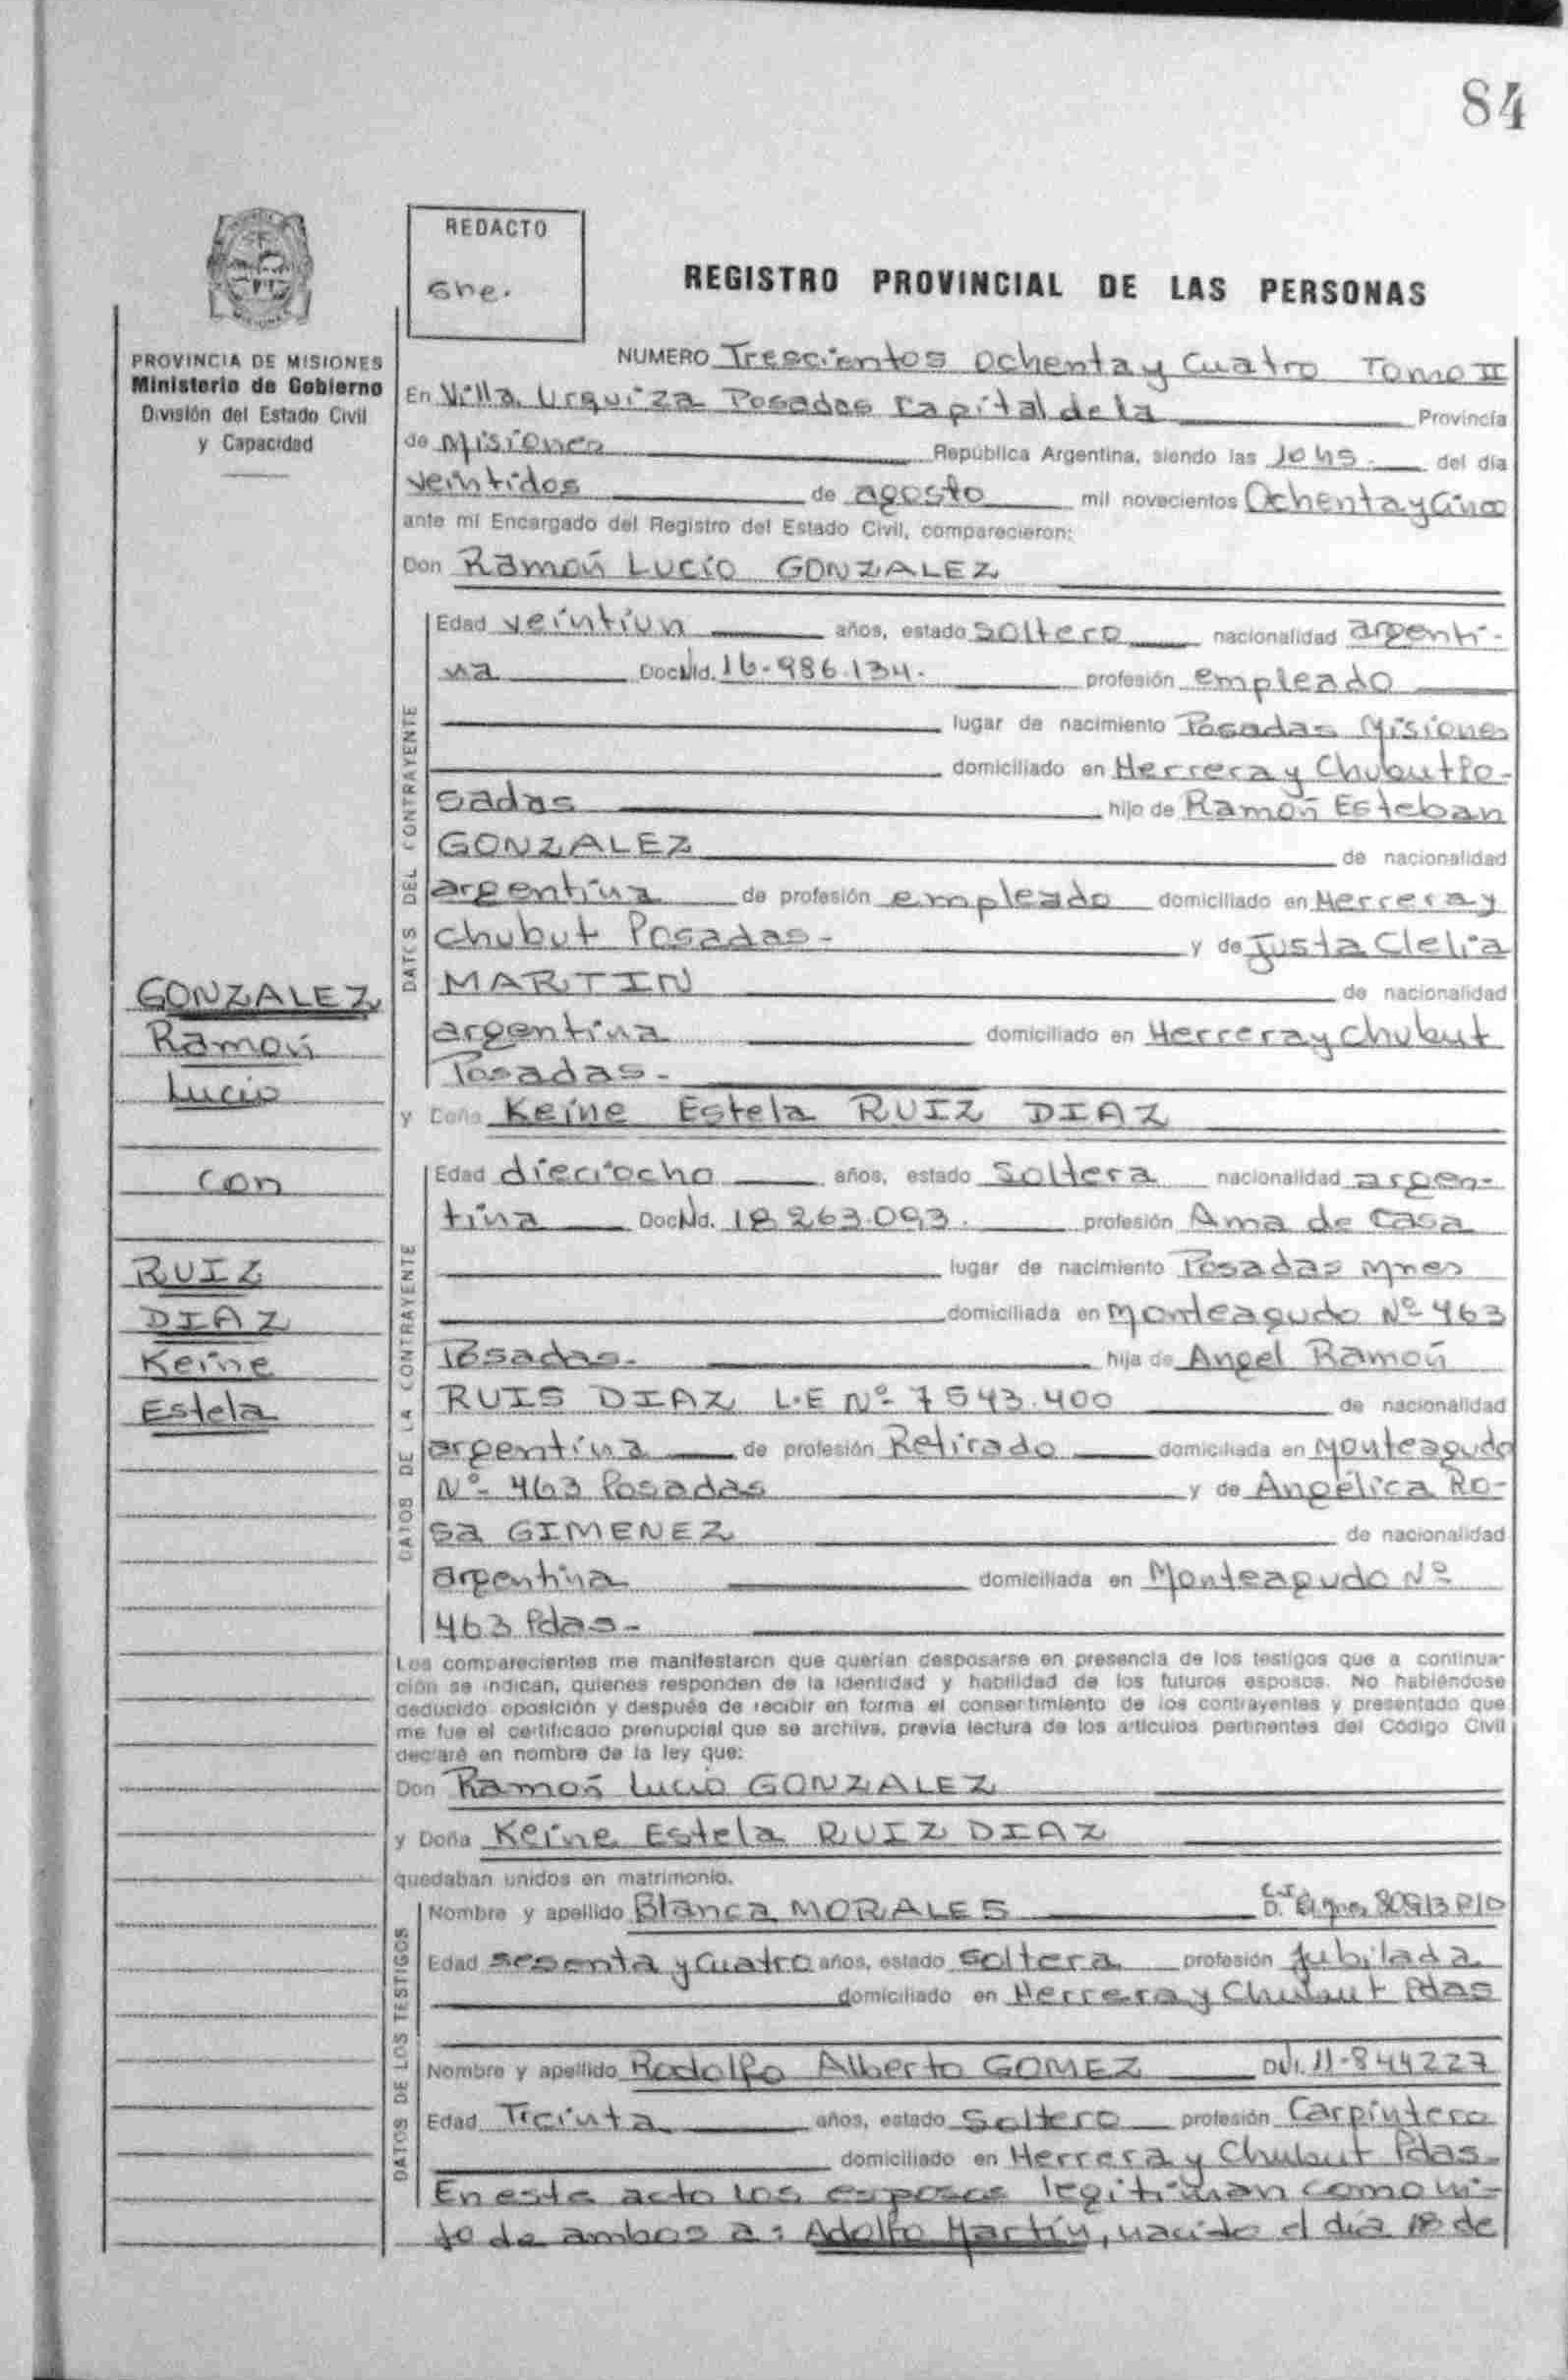 84
REDACTO
REGISTRO PROVINCIAL DE LAS PERSONAS
PROVINCIA DE MISIONES
Ministerio de Gobierno
División del Estado Civil
y Capacidad
NUMERO Trescientos Ochenta y Cuatro Tomo II
En Villa Urquiza Posadas Capital de la Provincia
de Misiones República Argentina, siendo las 10 hs. del día
veintidos de agosto mil novecientos Ochenta y Cinco
ante mí Encargado del Registro del Estado Civil, comparecieron:
Don Ramón Lucio GONZALEZ
DATOS DEL CONTRAYENTE
Edad veintiun años, estado Soltero nacionalidad argenti-
na Doc. Nd. 16.986.134. profesión empleado
lugar de nacimiento Posadas Misiones
domiciliado en Herrera y Chubut Po-
sadas hijo de Ramón Esteban
GONZALEZ de nacionalidad
argentina de profesión empleado domiciliado en Herrera y
Chubut Posadas- y de Justa Clelia
MARTIN de nacionalidad
argentina domiciliado en Herrera y Chubut
Posadas-
GONZALEZ
Ramón
Lucio
con
RUIZ
DIAZ
Keine
Estela
y Doña Keine Estela RUIZ DIAZ
DATOS DE LA CONTRAYENTE
Edad dieciocho años, estado Soltera nacionalidad argen-
tina Doc. Nd. 18.263.093. profesión Ama de Casa
lugar de nacimiento Posadas Mnes
domiciliada en Monteagudo Nº 463
Posadas- hija de Angel Ramón
RUIS DIAZ L.E Nº 7543.400 de nacionalidad
argentina de profesión Retirado domiciliada en Monteagudo
Nº 463 Posadas y de Angélica Ro-
sa GIMENEZ de nacionalidad
argentina domiciliada en Monteagudo Nº
463 Pdas-
Los comparecientes me manifestaron que querían desposarse en presencia de los testigos que a continua-
ción se indican, quienes responden de la identidad y habilidad de los futuros esposos. No habiéndose
deducido oposición y después de recibir en forma el consentimiento de los contrayentes y presentado que
me fue el certificado prenupcial que se archiva, previa lectura de los artículos pertinentes del Código Civil
declaré en nombre de la ley que:
Don Ramón Lucio GONZALEZ
y Doña Keine Estela RUIZ DIAZ
quedaban unidos en matrimonio.
DATOS DE LOS TESTIGOS
Nombre y apellido Blanca MORALES
Edad sesenta y Cuatro años, estado soltera profesión Jubilada
domiciliado en Herrera y Chubut Pdas
Nombre y apellido Rodolfo Alberto GOMEZ DNI. 11.844227
Edad Treinta años, estado Soltero profesión Carpintero
domiciliado en Herrera y Chubut Pdas-
En este acto los esposos legitiman como hi-
jo de ambos a: Adolfo Martín, nacido el día 18 de